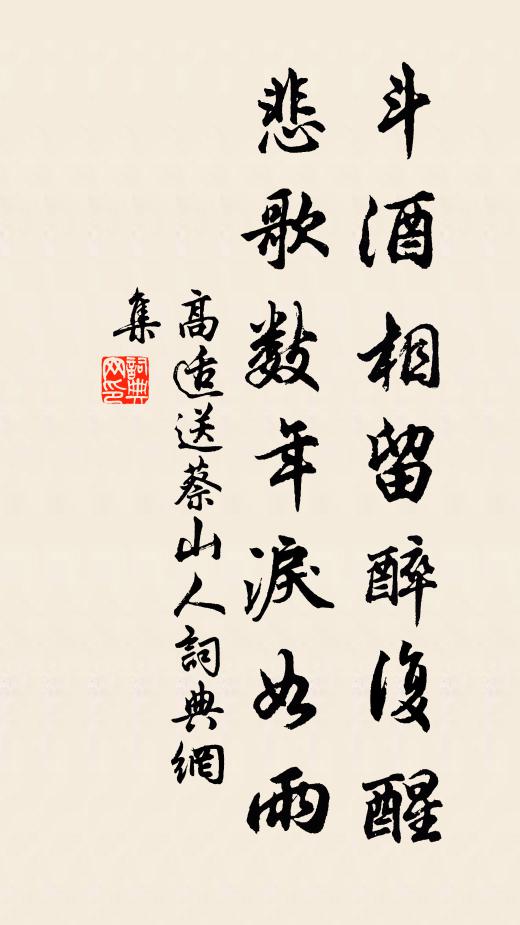 斗酒相留醉復醒
悲歌数年淚如雨
高适送蔡山人詞典網
集
詞典
网印